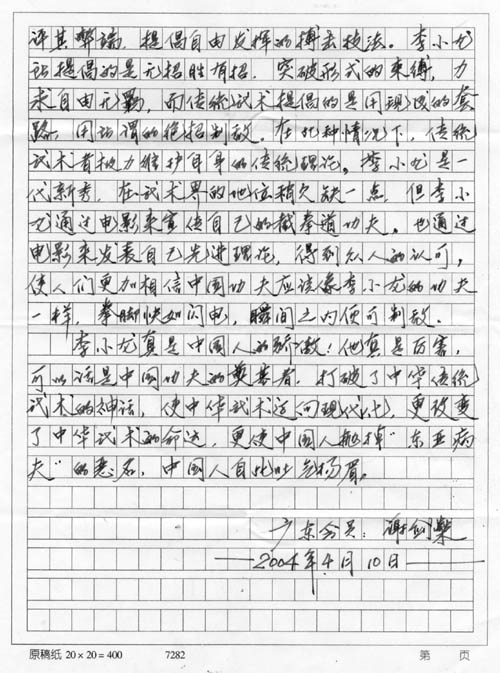 评其弊端，提倡自由发挥的搏击技法。李小龙
说提倡的是无招胜有招，突破形式的束缚，力
求自由无影，而传统武术提倡的是用现成的套
路，用所谓的绝招制敌。在此种情况下，传统
武术者极力维护自身的传统理论。李小龙是一
代新秀，在武术界的地位稍欠缺一点，但李小
龙通过电影来宣传自己的截拳道功夫，也通过
电影来发表自己先进理论，得到众人的认可，
使人们更加相信中国功夫应该像李小龙的功夫
一样，拳脚快如闪电，瞬间之内便可制敌。
李小龙真是中国人的骄傲！他真是厉害，
可以说是中国功夫的奠基者，打破了中华传统
武术的神话，使中华武术迈向现代化，更改变
了中华武术的命运，更使中国人抛掉“东亚病
夫”的恶名，中国人自此吐气扬眉。
广东会员：谢
2004年4月10日
原稿纸 20×20=400 7282 第 页